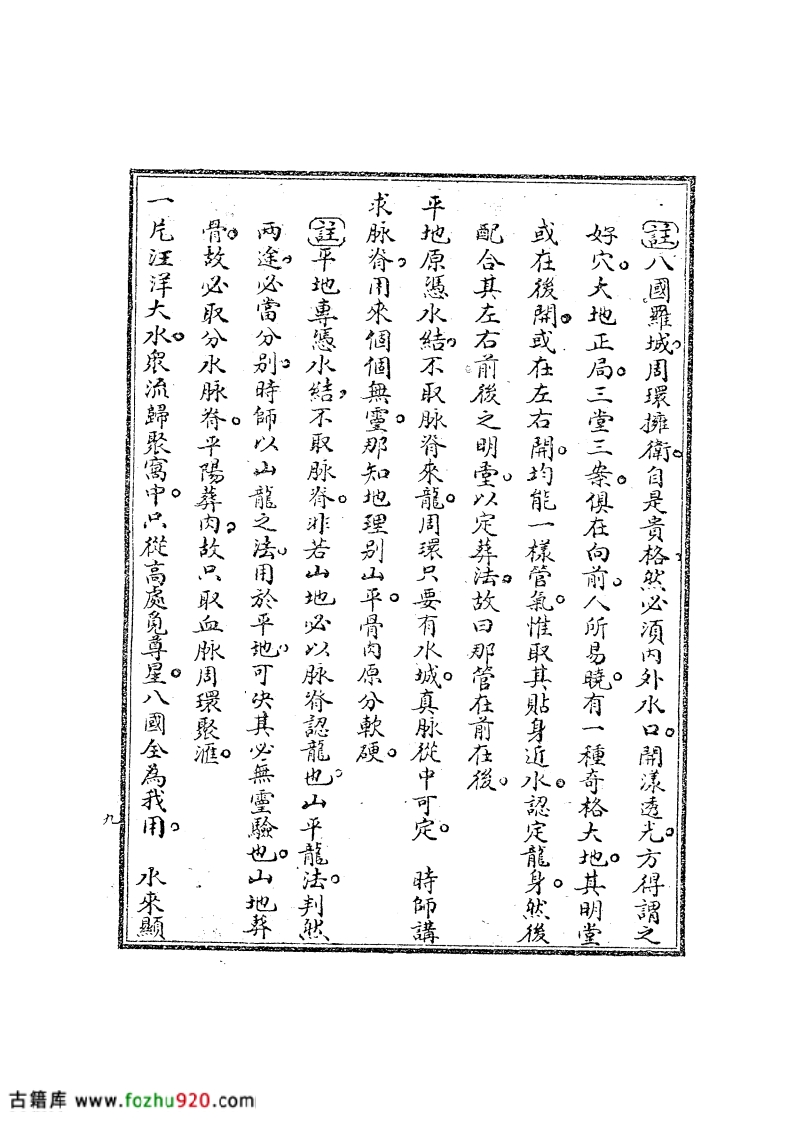 註八國羅城。周環擁衛。自是貴格。然必須內外水口。開漾透光。方得謂之
好穴。大地正局。三堂三案。俱在向前。人所易曉。有一種奇格大地。其明堂
或在後開。或在左右開。均能一樣管氣。惟取其貼身近水。認定龍身。然後
配合其左右前後之明堂。以定葬法。故曰那管在前在後。
平地原憑水結。不取脉脊來龍。周環只要有水城。真脉從中可定。　時師講
求脉脊。用來個個無靈。那知地理別山平。骨肉原分軟硬。
註平地專憑水結。不取脉脊。非若山地必以脉脊認龍也。山平龍法。判然
兩途。必當分別。時師以山龍之法。用於平地。可決其必無靈驗也。山地葬
骨。故必取分水脉脊。平陽葬肉。故只取血脉周環聚滙。
一片汪洋大水。衆流歸聚窩中。只從高處覓尊星。八國全為我用。　水來顯
九
古籍库 www.fozhu920.com